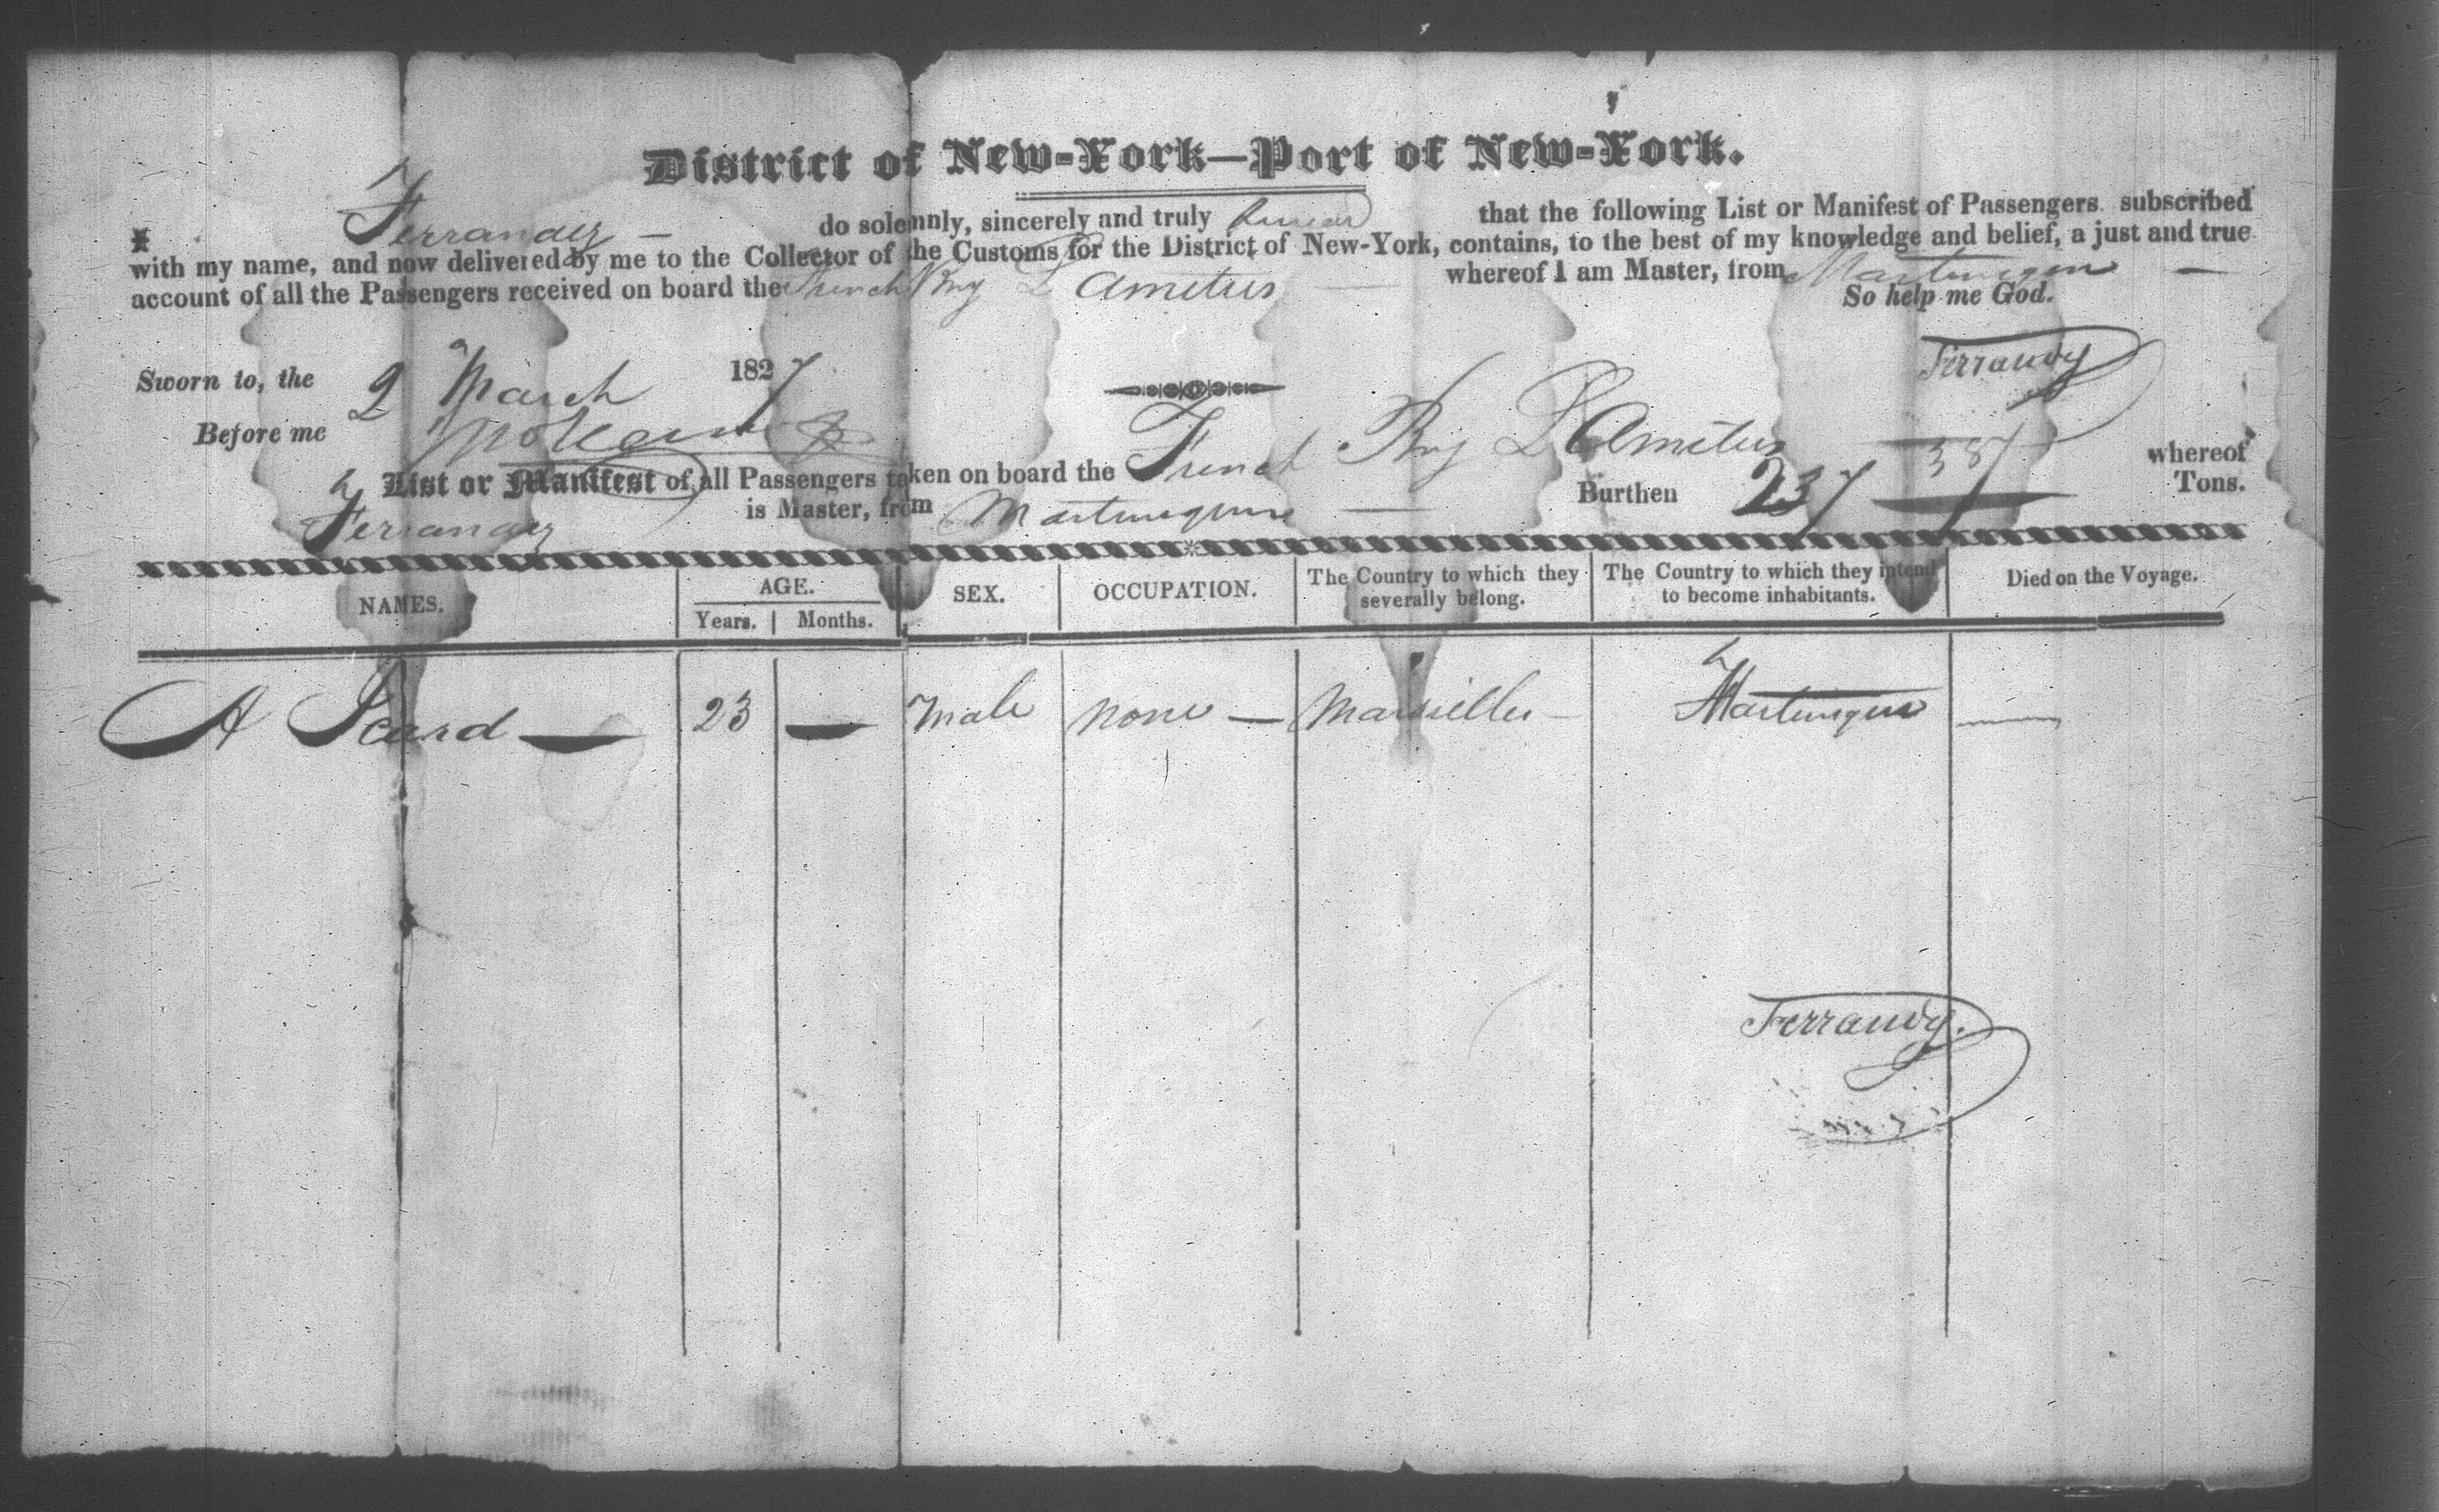 District of New-York—Port of New-York.
I Ferrandy — do solemnly, sincerely and truly swear that the following List or Manifest of Passengers subscribed
with my name, and now delivered by me to the Collector of the Customs for the District of New-York, contains, to the best of my knowledge and belief, a just and true
account of all the Passengers received on board the French Brig L'Ametus whereof I am Master, from Martinique —
So help me God.
Sworn to, the 2 March 1827 Ferrandy
Before me
List or Manifest of all Passengers taken on board the French Brig L'Ametus whereof
Ferrandy is Master, from Martinique — Burthen 237 Tons.
NAMES. AGE. Years. Months. SEX. OCCUPATION. The Country to which they severally belong. The Country to which they intend to become inhabitants. Died on the Voyage.
A Icard — 23 — Male none — Marseilles — Martinique —
Ferrandy.